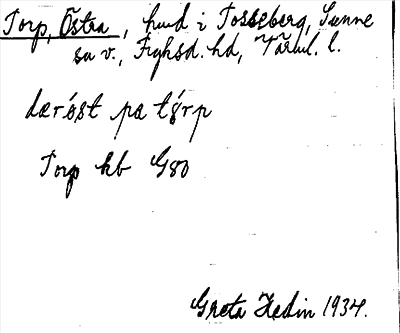 Torp, Östra, hmd i Tosseberg, Sunne
sn v., Fryksd. hd, Värml. l.
dær óst pa tǿrp
Torp kb G80
Greta Hedin 1934.